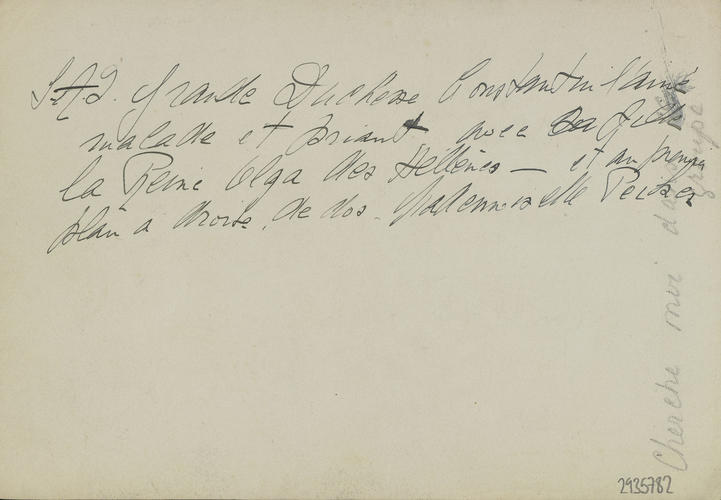 S.A.I. Grande Duchesse Constantin l'ainée
malade et priant avec sa fille
la Reine Olga des Hellènes — et au premier
plan a droite, de dos. Mademoiselle
Cherche moi dans groupe
2935782